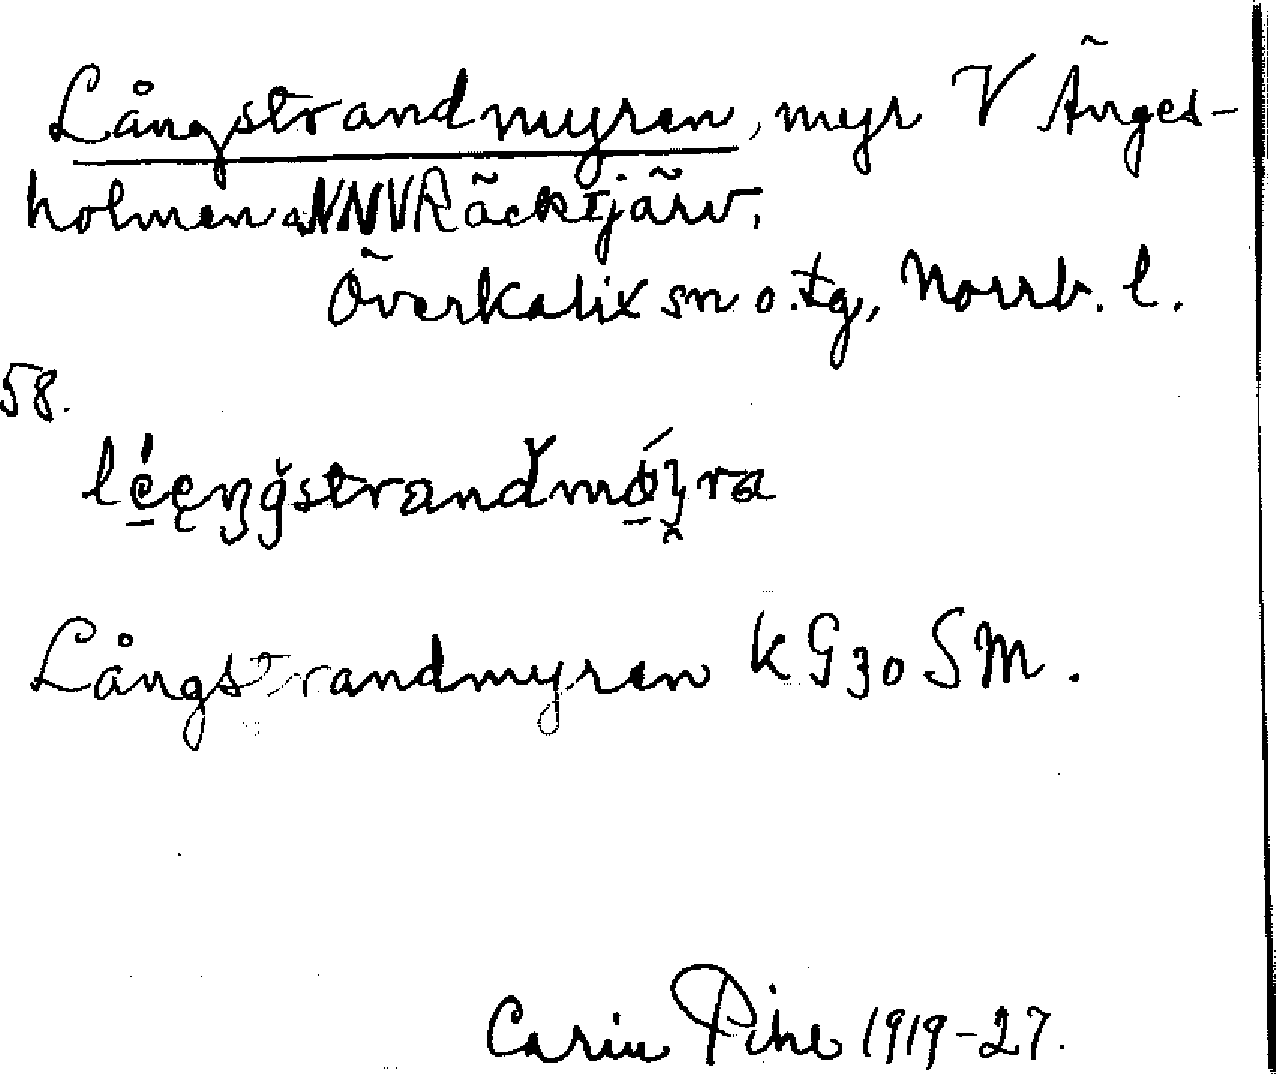 Långstrandmyren, myr V Änges-
holmen NNV Räcktjärv,
Överkalix sn o. tg, Norrb. l.
58.
Långstrandmyren k G30 SM.
Carin Pihl 1919-27.